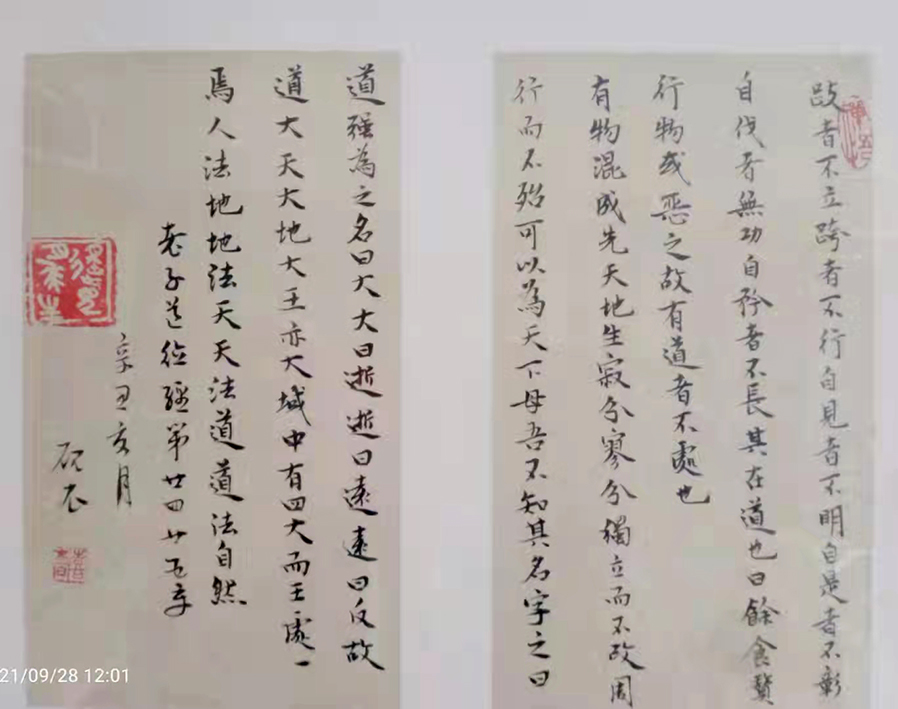 跂者不立跨者不行自見者不明自是者不彰
自伐者無功自矜者不長其在道也曰餘食贅
行物或惡之故有道者不處也
有物混成先天地生寂兮寥兮獨立而不改周
行而不殆可以為天下母吾不知其名字之曰
道強為之名曰大大曰逝逝曰遠遠曰反故
道大天大地大王亦大域中有四大而王處一
焉人法地地法天天法道道法自然
老子道德經第廿四廿五章
辛丑亥月
砚农
21/09/28 12:01